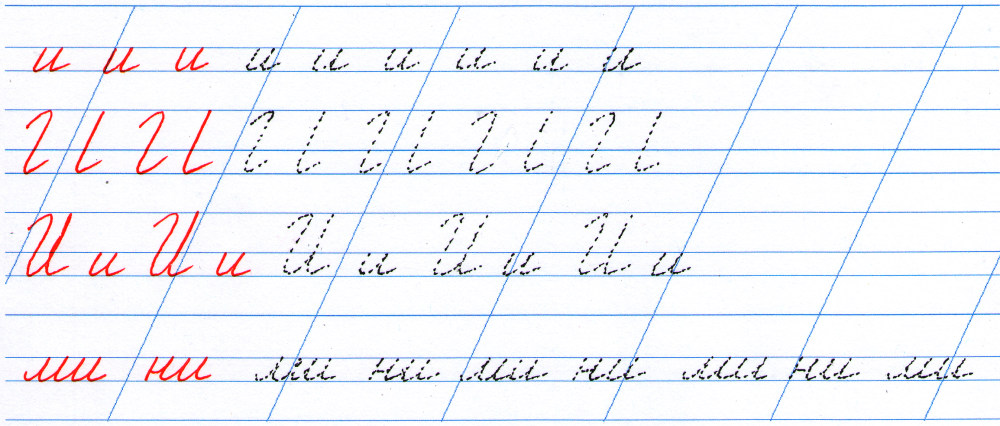 и и и и и и и и и
И и И и И и И и И и
ми ни ми ни ми ни ми ни ми